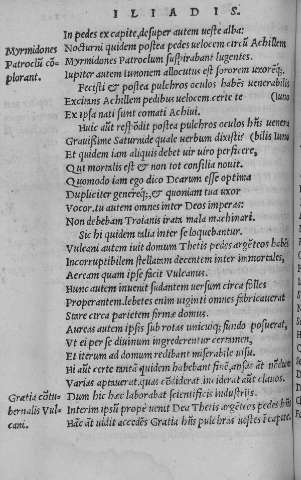 ILIADIS.
In pedes ex capite, desuper autem ueste alba:
Myrmidones Patroclū cōplorant.
Nocturni quidem postea pedes uelocem circū Achillem
Myrmidones Patroclum suspirabant lugentes.
Iupiter autem Iunonem allocutus est sororem uxoreq́;.
Fecisti & postea pulchros oculos habēs uenerabilis
Excitans Achillem pedibus uelocem certe te (Iuno
Ex ipsa nati sunt comati Achiui.
Huic aūt respōdit postea pulchros oculos hñs uenera
Grauissime Saturnide quale uerbum dixisti (bilis Iuno
Et quidem iam aliquis debet uir uiro perficere,
Qui mortalis est & non tot consilia nouit.
Quomodo iam ego dico Dearum esse optima
Dupliciter genereq́;, & quoniam tua uxor
Vocor, tu autem omnes inter Deos imperas:
Non debebam Troianis irata mala machinari.
Sic hi quidem talia inter se loquebantur.
Vulcani autem iuit domum Thetis pedes argēteos habēs
Incorruptibilem stellatam decentem inter immortales,
Aeream quam ipse fecit Vulcanus.
Hunc autem inuenit sudantem uersum circa folles
Properantem. lebetes enim uiginti omnes fabricauerat
Stare circa parietem firmæ domus.
Aureas autem ipsis sub rotas unicuiq; fundo posuerat,
Vt ei per se diuinum ingrederentur certamen,
Et iterum ad domum redibant mirabile uisu.
Hi aūt certe tantā quidem habebant finē, ansas āt nōdū
Varias aptauerat, quas
Gratia cōtubernalis Vulcani.
Dum hic hæc laborabat scientificis industrijs,
Interim ipsū prope uenit Dea Thetis argēteos pedes hñs
Hāc āt uidit accedēs Gratia hñs pulchras uestes ī capite.